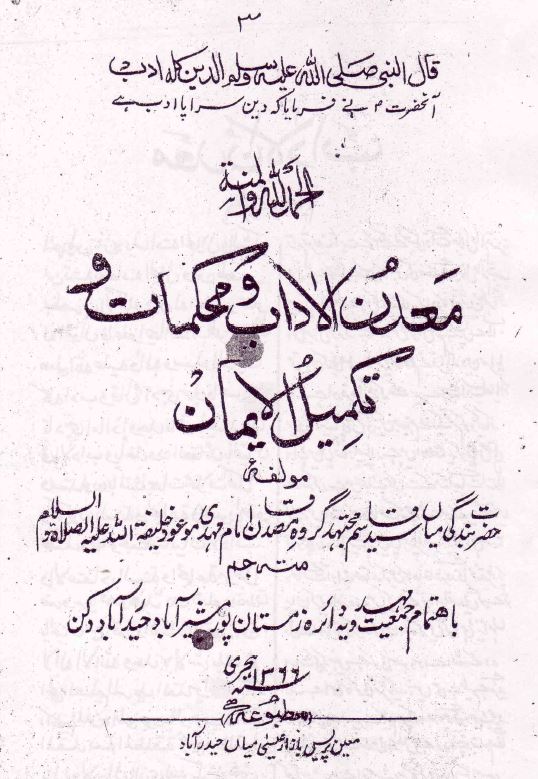 ۳
قال النبی صلی اللہ علیہ وسلم الدین کلہ ادب
آنحضرت ؐ نے فرمایا کہ دین سراپا ادب ہے
الحمد للہ والمنۃ
معدن الآداب و محکمات و
تکمیل الایمان
مولفہٴ
حضرت بندگی میاں سید قاسم مجتہد گروہ مصدقان امام مہدی موعود خلیفۃ اللہ علیہ الصلاۃ والسلام
مترجم
باهتمام جمعیت مہدویہ دائرہ زمستان پور مشیرآباد حیدرآباد دکن
۱۳۶۶ سنہ ہجری
مطبوعہ
معین پریس بازار عیسیٰ میاں حیدرآباد